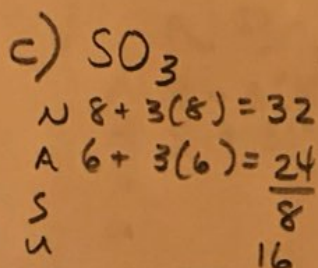 c) SO₃
N 8 + 3(8) = 32
A 6 + 3(6) = 24
S 8
U 16